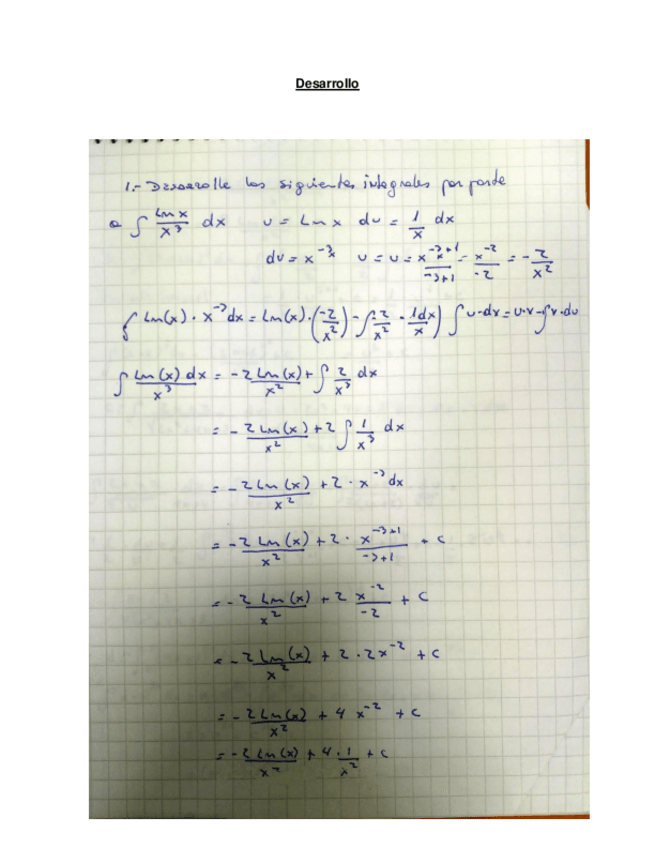 Desarrollo
1.- Desarrolle las siguientes integrales por parte
a ∫ Ln x / x³ dx u = Ln x du = 1/x dx
dv = x⁻³ v = v = x⁻³⁺¹ / -3+1 = x⁻² / -2 = - 2/x²
∫ Ln(x) · x⁻³ dx = Ln(x) · (-2/x²) - ∫ 2/x² · 1dx/x) ∫ u · dx = u · v - ∫ v · du
∫ Ln(x) dx / x³ = - 2 Ln(x) / x² + ∫ 2/x³ dx
= - 2 Ln(x) / x² + 2 ∫ 1/x³ dx
= - 2 Ln(x) / x² + 2 · x⁻³ dx
= - 2 Ln(x) / x² + 2 · x⁻³⁺¹ / -3+1 + c
= - 2 Ln(x) / x² + 2 x⁻² / -2 + c
= - 2 Ln(x) / x² + 2 · 2x⁻² + c
= - 2 Ln(x) / x² + 4 x⁻² + c
= - 2 Ln(x) / x² + 4 · 1 / x² + c